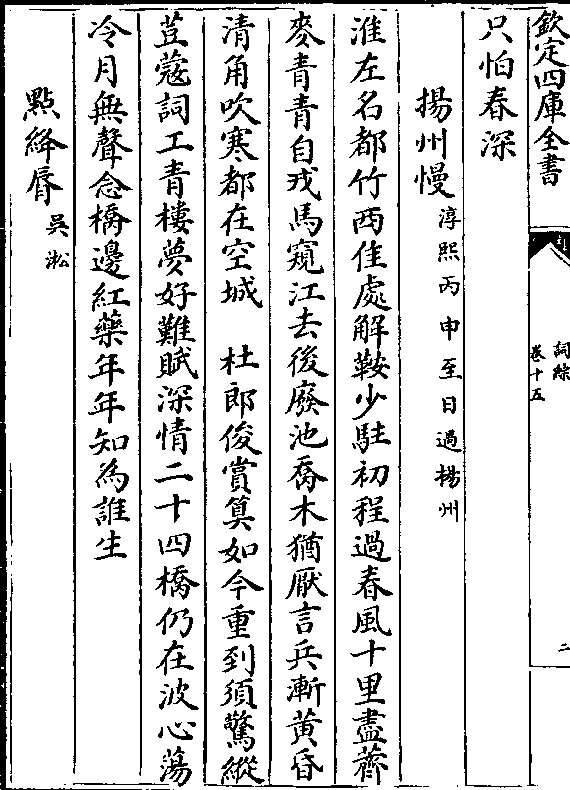 欽定四庫全書
詞綜
卷十五
二
只怕春深
揚州慢 淳熙丙申至日過揚州
淮左名都竹西佳處解鞍少駐初程過春風十里盡薺
麥青青自戎馬窺江去後廢池喬木猶厭言兵漸黃昏
清角吹寒都在空城 杜郎俊賞算如今重到須驚縱
荳蔻詞工青樓夢好難賦深情二十四橋仍在波心蕩
冷月無聲念橋邊紅藥年年知為誰生
點絳唇 吳淞